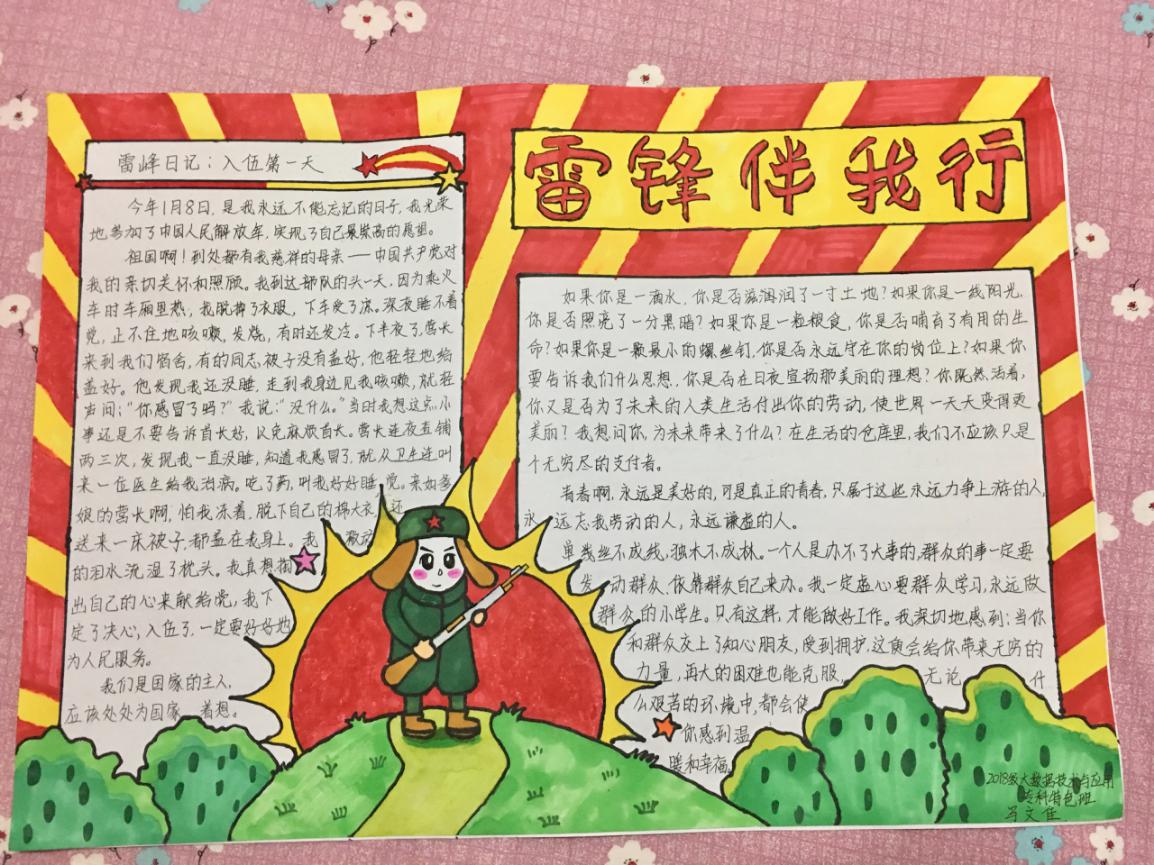 雷锋伴我行
雷峰日记：入伍第一天
今年1月8日，是我永远不能忘记的日子，我光荣
地参加了中国人民解放军，实现了自己最崇高的愿望。
祖国啊！到处都有我慈祥的母亲——中国共产党对
我的亲切关怀和照顾。我到达部队的头一天，因为乘火
车时车厢里热，我脱掉了衣服，下车受了凉。深夜睡不着
觉，正不住地咳嗽，发烧，有时还发冷。下半夜了，营长
来到我们宿舍，有的同志被子没有盖好，他轻轻地给
盖好。他发现我还没睡，走到我身边见我咳嗽，就轻
声问：“你感冒了吗？”我说：“没什么。”当时我想这点小
事还是不要告诉首长好，以免麻烦首长。营长连夜查铺
两三次，发现我一直没睡，知道我感冒了，就从卫生连叫
来一位医生给我治病。吃了药，叫我好好睡觉。亲如爹
娘的营长啊，怕我冻着，脱下自己的棉大衣，还
送来一床被子，都盖在我身上。我激动
的泪水流湿了枕头。我真想掏
出自己的心来献给党，我下
定了决心，入伍了，一定要好好地
为人民服务。
我们是国家的主人，
应该处处为国家着想。
如果你是一滴水，你是否滋润了一寸土地？如果你是一线阳光，
你是否照亮了一分黑暗？如果你是一粒粮食，你是否哺育了有用的生
命？如果你是一颗最小的螺丝钉，你是否永远守在你的岗位上？如果你
要告诉我们什么思想，你是否在日夜宣扬那美丽的理想？你既然活着，
你又是否为了未来的人类生活付出你的劳动，使世界一天天变得更
美丽？我想问你，为未来带来了什么？在生活的仓库里，我们不应该只是
个无穷尽的支付者。
青春啊，永远是美好的，可是真正的青春，只属于这些永远力争上游的人，
永远忘我劳动的人，永远谦虚的人。
单丝不成线，独木不成林。一个人是办不了大事的，群众的事一定要
发动群众、依靠群众自己来办。我一定虚心要群众学习，永远做
群众的小学生。只有这样，才能做好工作。我深切地感到：当你
和群众交上了知心朋友，受到拥护，这便会给你带来无穷的
力量，再大的困难也能克服，无论什
么艰苦的环境中，都会使
你感到温
暖和幸福。
2018级大数据技术与应用
专科特色班